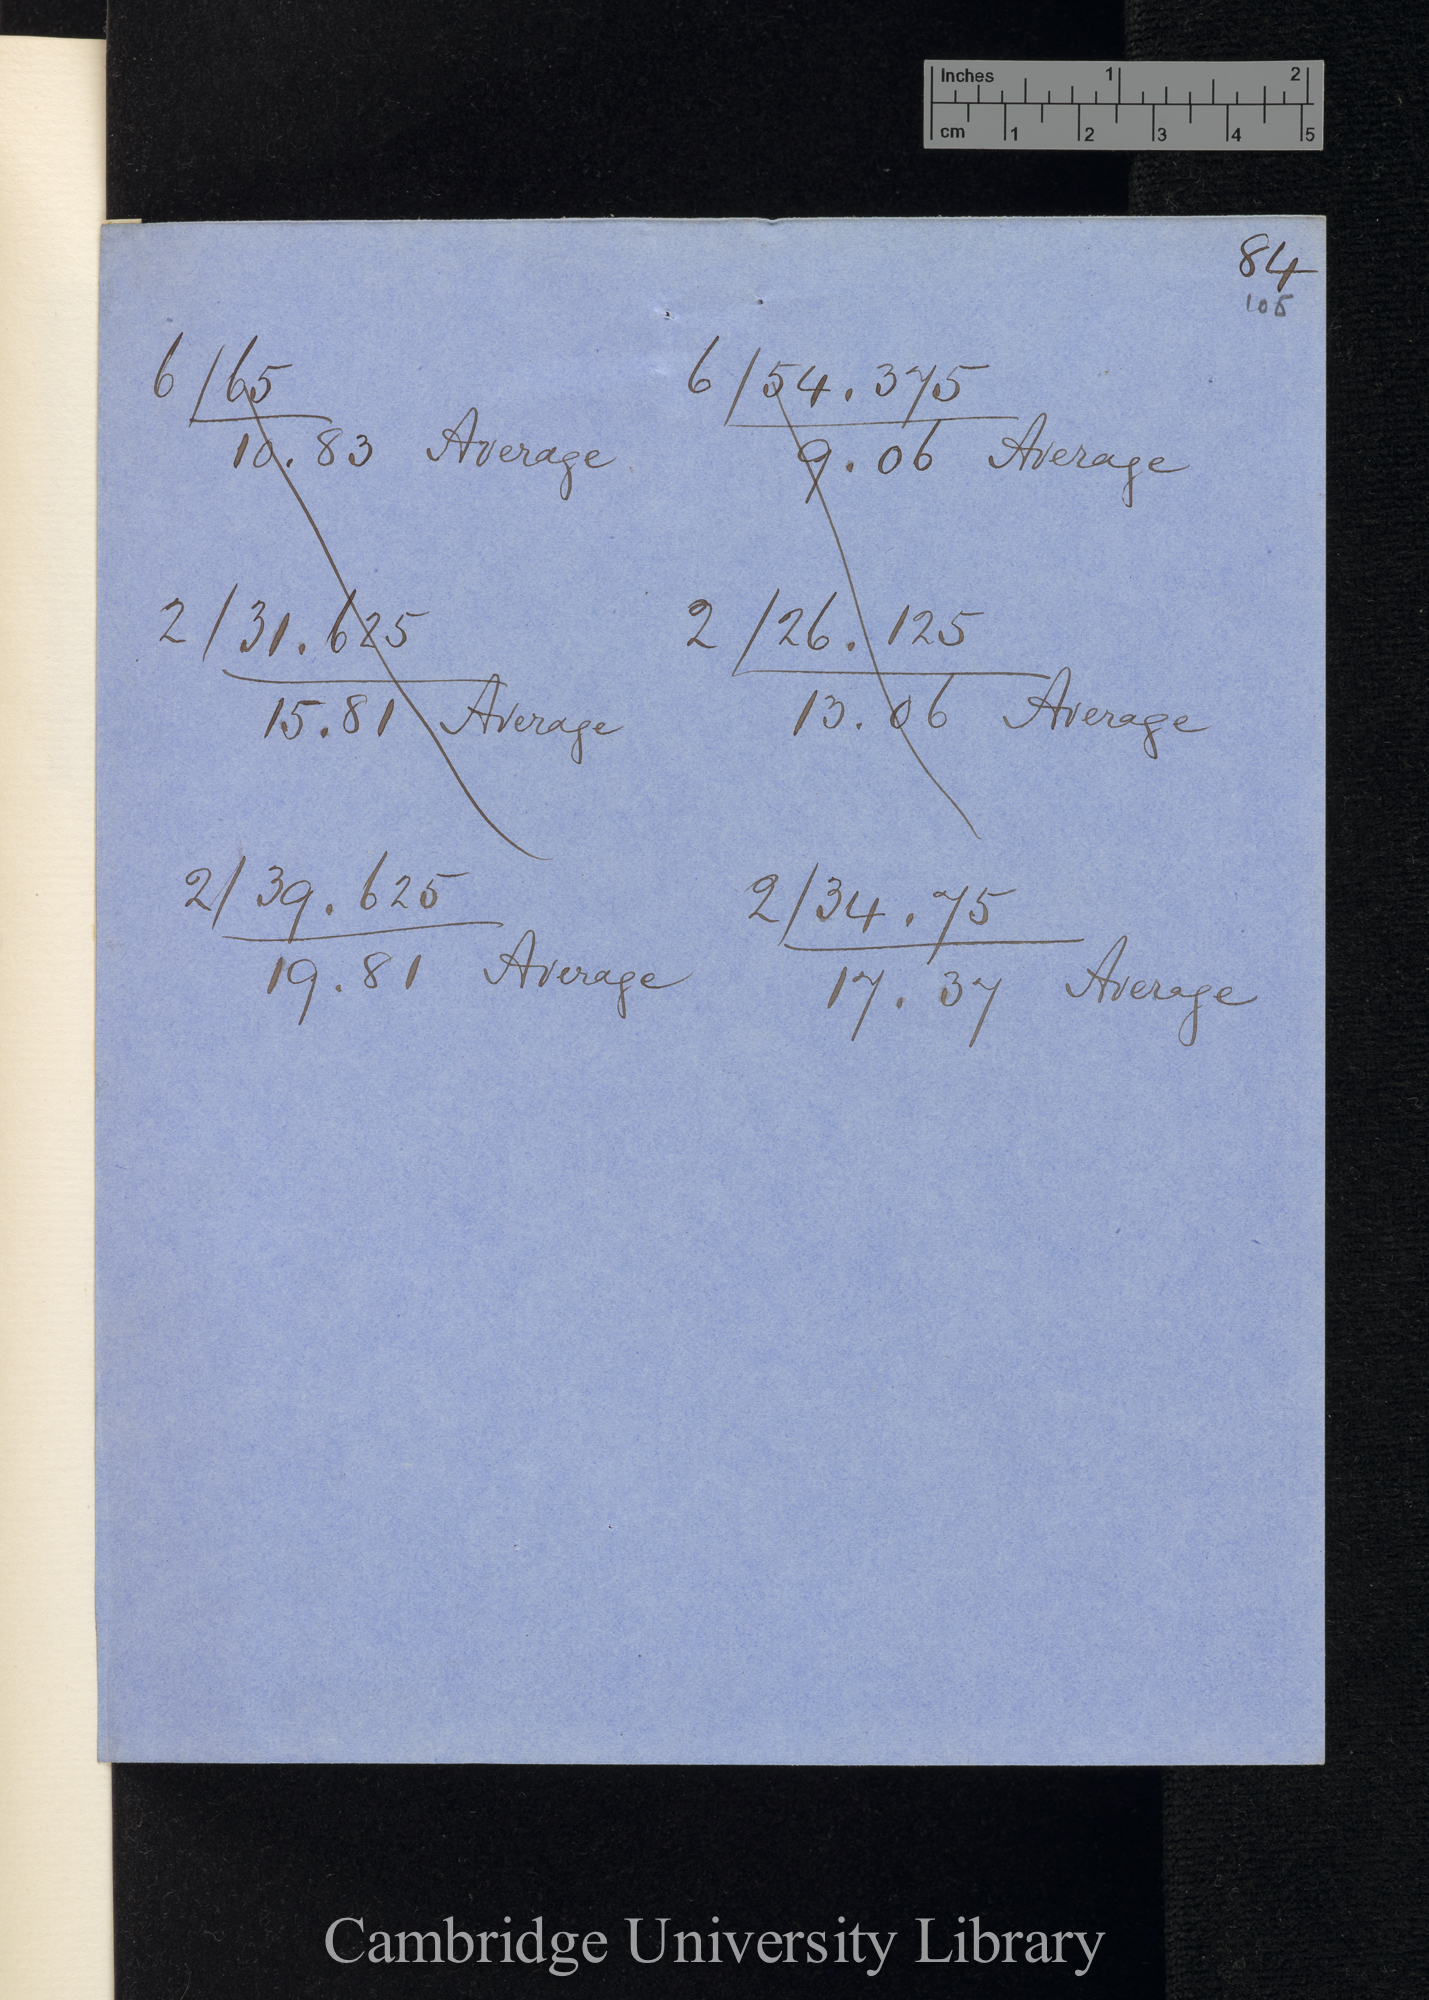 Inches 1 2
cm 1 2 3 4 5
84
105
6 / 65 6 / 54.375
10.83 Average 9.06 Average
2 / 31.625 2 / 26.125
15.81 Average 13.06 Average
2 / 39.625 2 / 34.75
19.81 Average 17.37 Average
Cambridge University Library